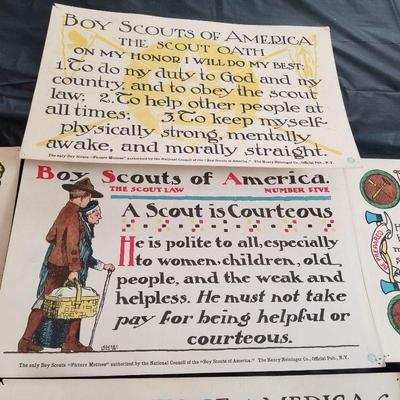 BOY SCOUTS OF AMERICA
THE SCOUT OATH
ON MY HONOR I WILL DO MY BEST:
1. To do my duty to God and my
country, and to obey the scout
law; 2. To help other people at
all times; 3. To keep myself
physically strong, mentally
awake, and morally straight.
The only Boy Scouts "Picture Mottoes" authorized by the National Council of the "Boy Scouts of America." The Henry Heininger Co., Official Pub., N.Y.
Boy Scouts of America.
THE SCOUT LAW NUMBER FIVE
A Scout is Courteous
He is polite to all, especially
to women, children, old
people, and the weak and
helpless. He must not take
pay for being helpful or
courteous.
The only Boy Scouts "Picture Mottoes" authorized by the National Council of the "Boy Scouts of America." The Henry Heininger Co., Official Pub., N.Y.
BE PREPARED
OF AMERICA